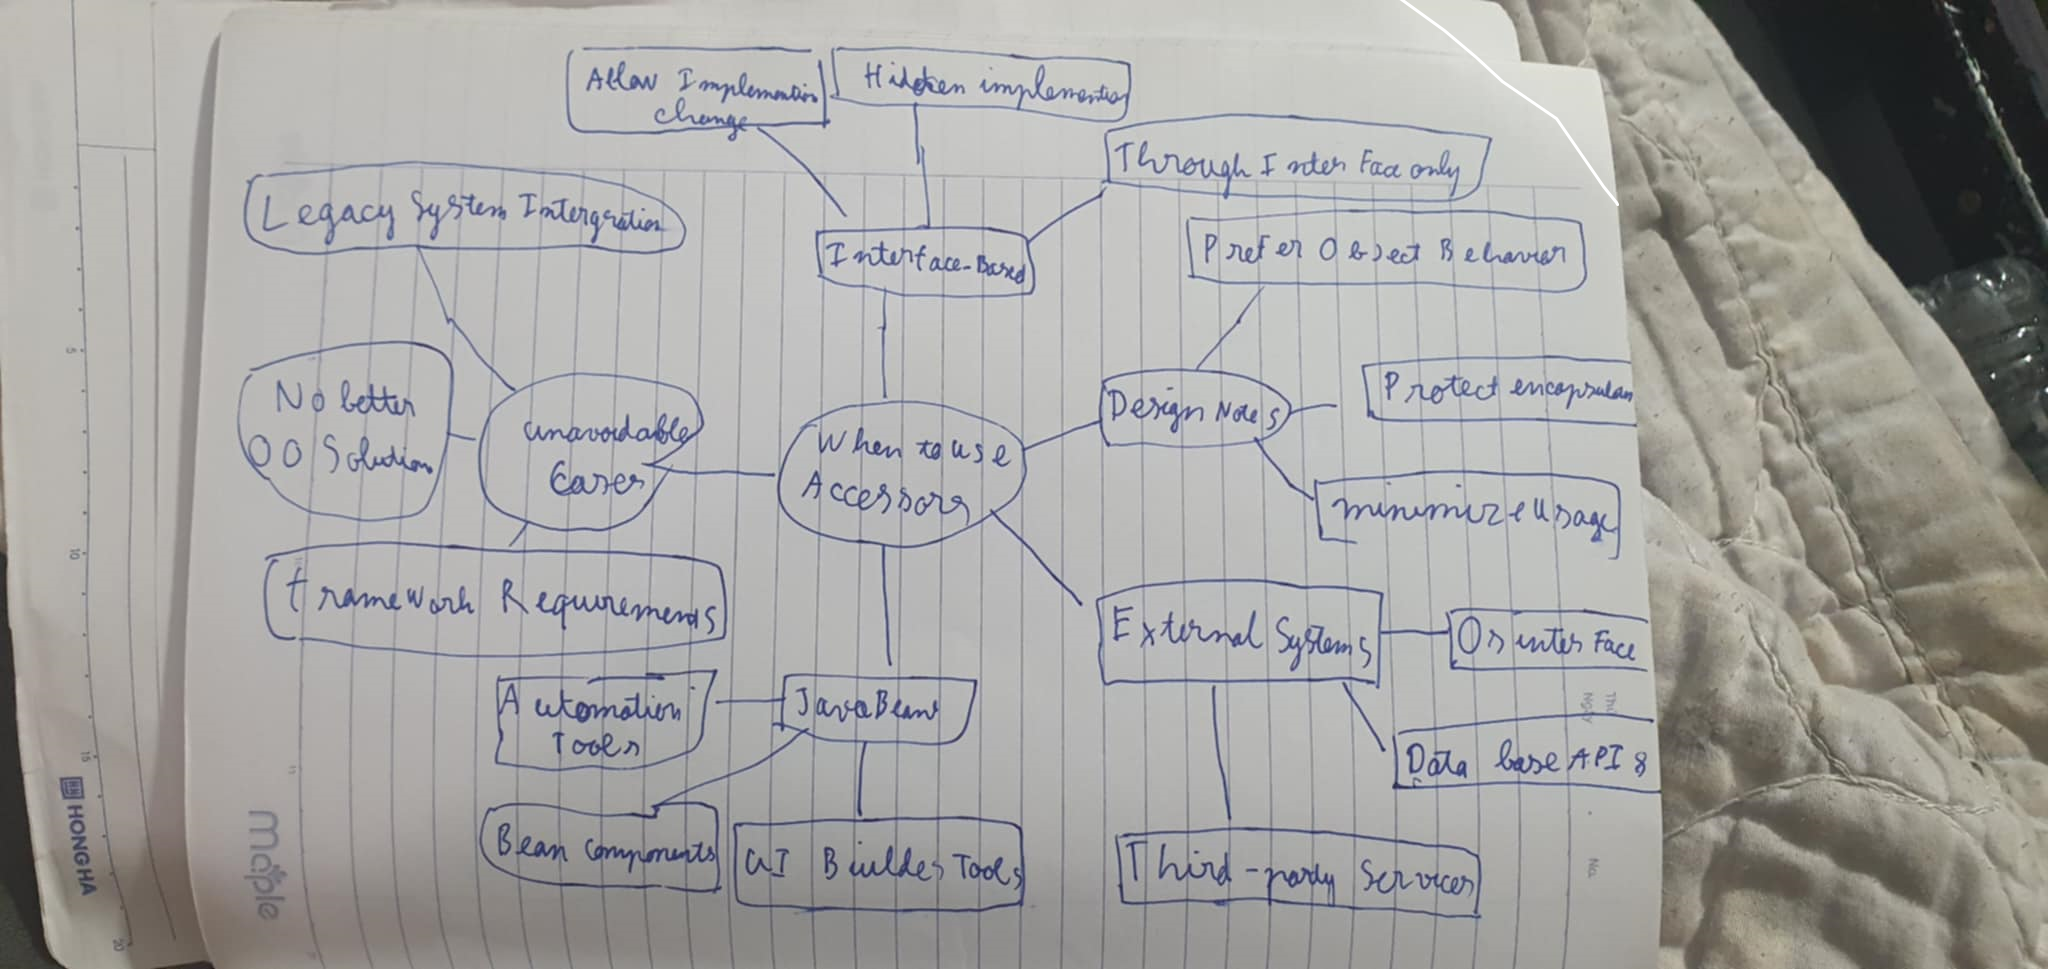 Allow Implemention
change
Hidden implemention
Through Inter Face only
Legacy System Intergration
Interface-Based
Prefer Object Behavior
No better
OO Solution
unavoidable
Cases
When to use
Accessors
Design Notes
Protect encapsulan
minimize Usage
framework Requirements
External Systems
Os inter Face
Automation
Tools
JavaBean
Data base API s
Bean Components
UI Builder Tools
Third-party Services
HONGHA
maple
5
10
15
20
No.